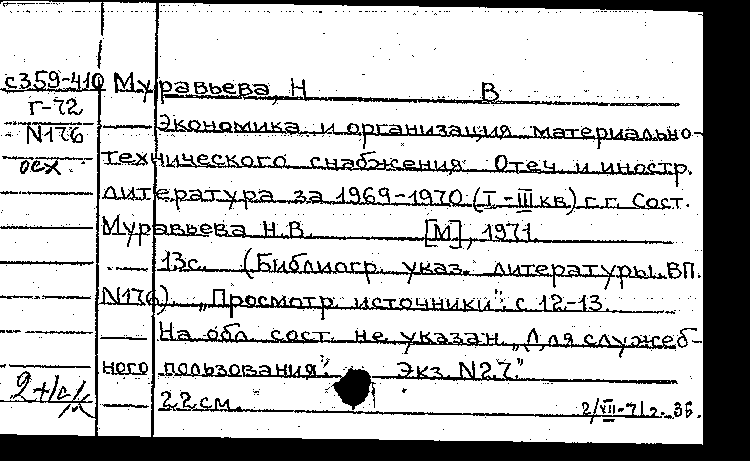 с359-410 Муравьева, Н В
Г-72
N176 Экономика и организация материально-
осх. технического снабжения Отеч. и иностр.
литература за 1969-1970 (I-III кв) г.г. Сост.
Муравьева Н.В. [М], 1971.
13с. (Библиогр. указ. литературы. ВП.
N176). „Просмотр. источники": с 12-13.
На обл сост. не указан. „Для служеб-
ного пользования". Экз. N27."
22 см.
2/VII-71г. 36.